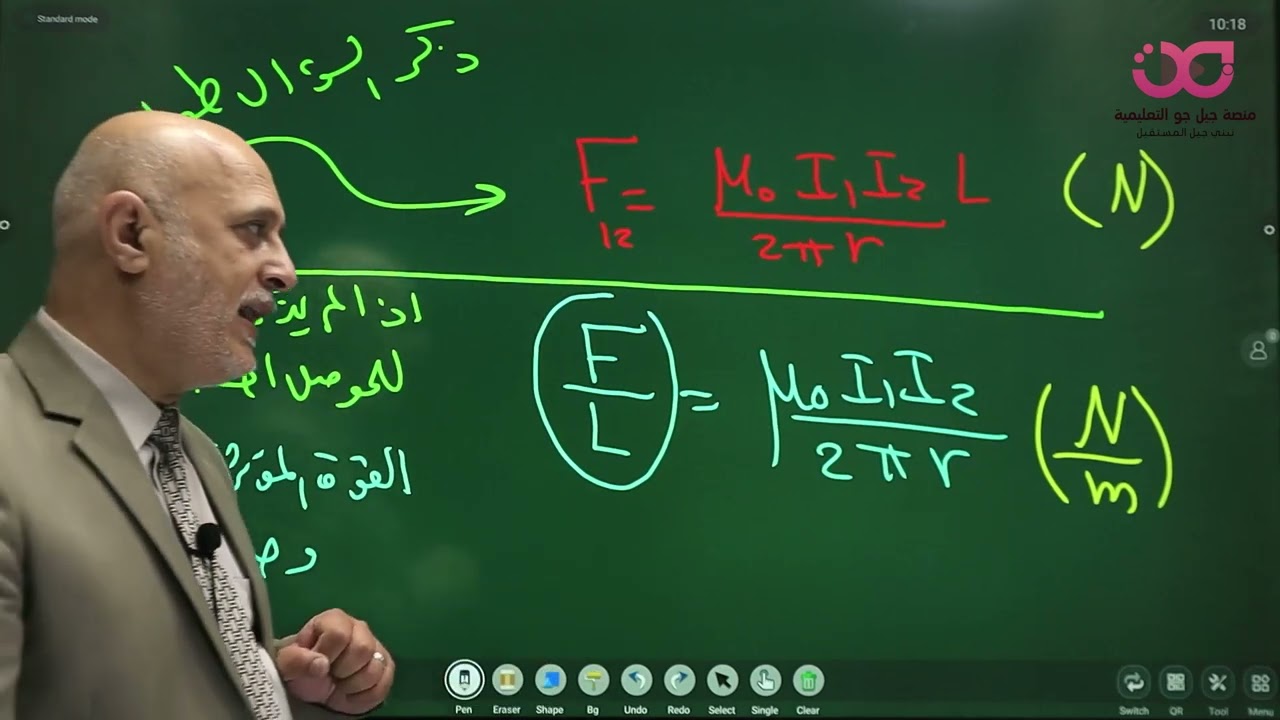 Standard mode
10:18
منصة جيل جو التعليمية
نبني جيل المستقبل
ذكر السؤال
F₁₂ = μ₀ I₁ I₂ L / 2πr (N)
اذا لم
للموصل
F/L = μ₀ I₁ I₂ / 2πr (N/m)
القوة
Pen Eraser Shape Bg Undo Redo Select Single Clear
Switch QR Tool Menu